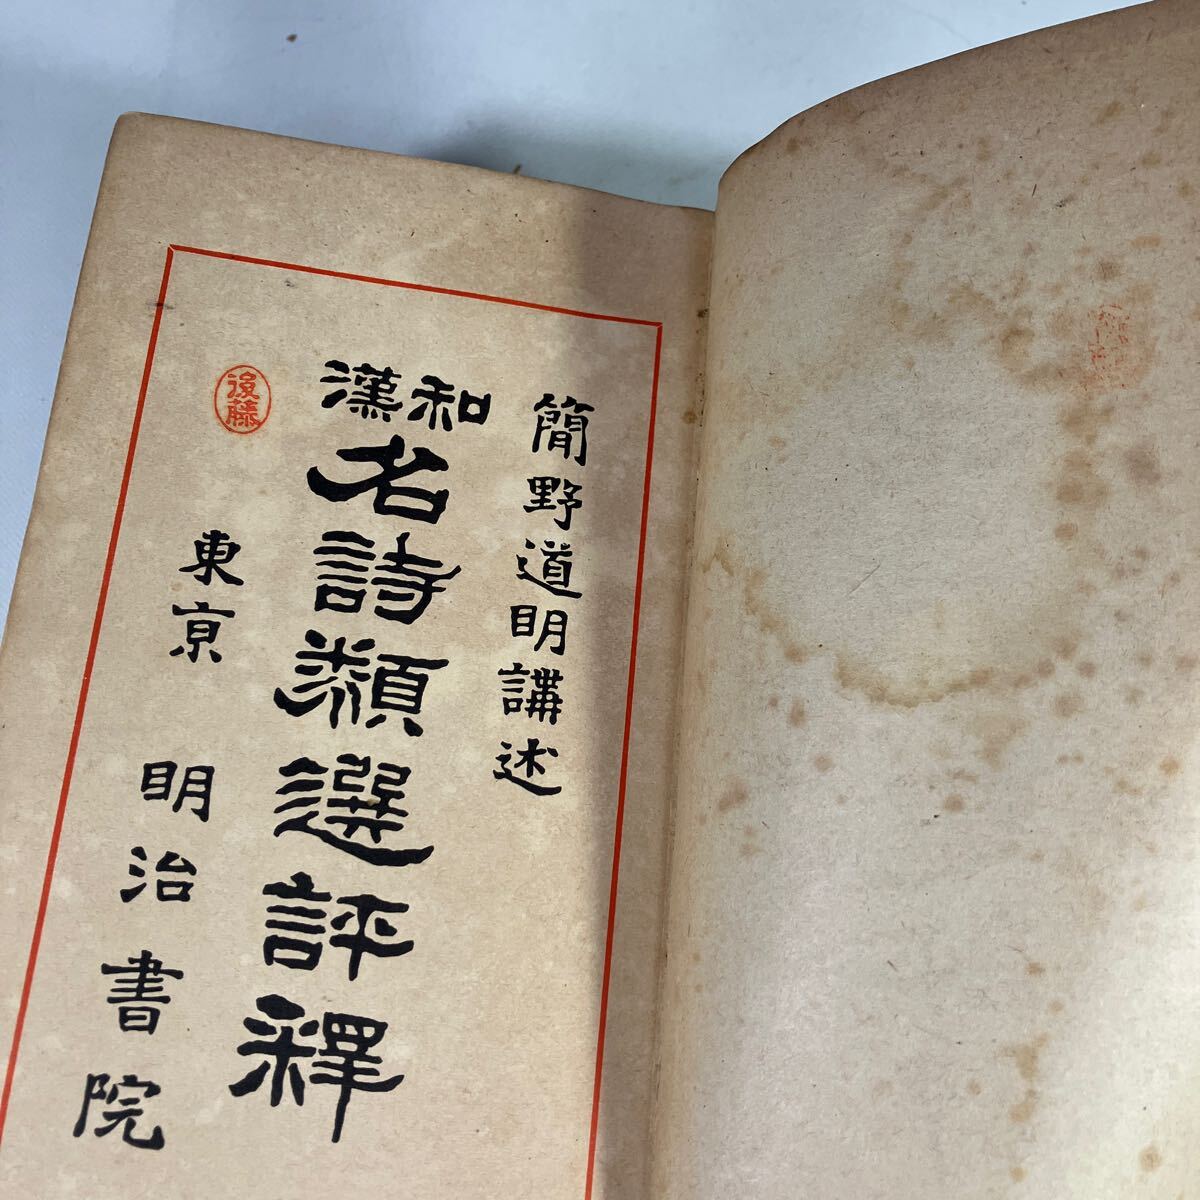 簡野道明講述
和漢
名詩類選評釋
後藤
東京
明治書院